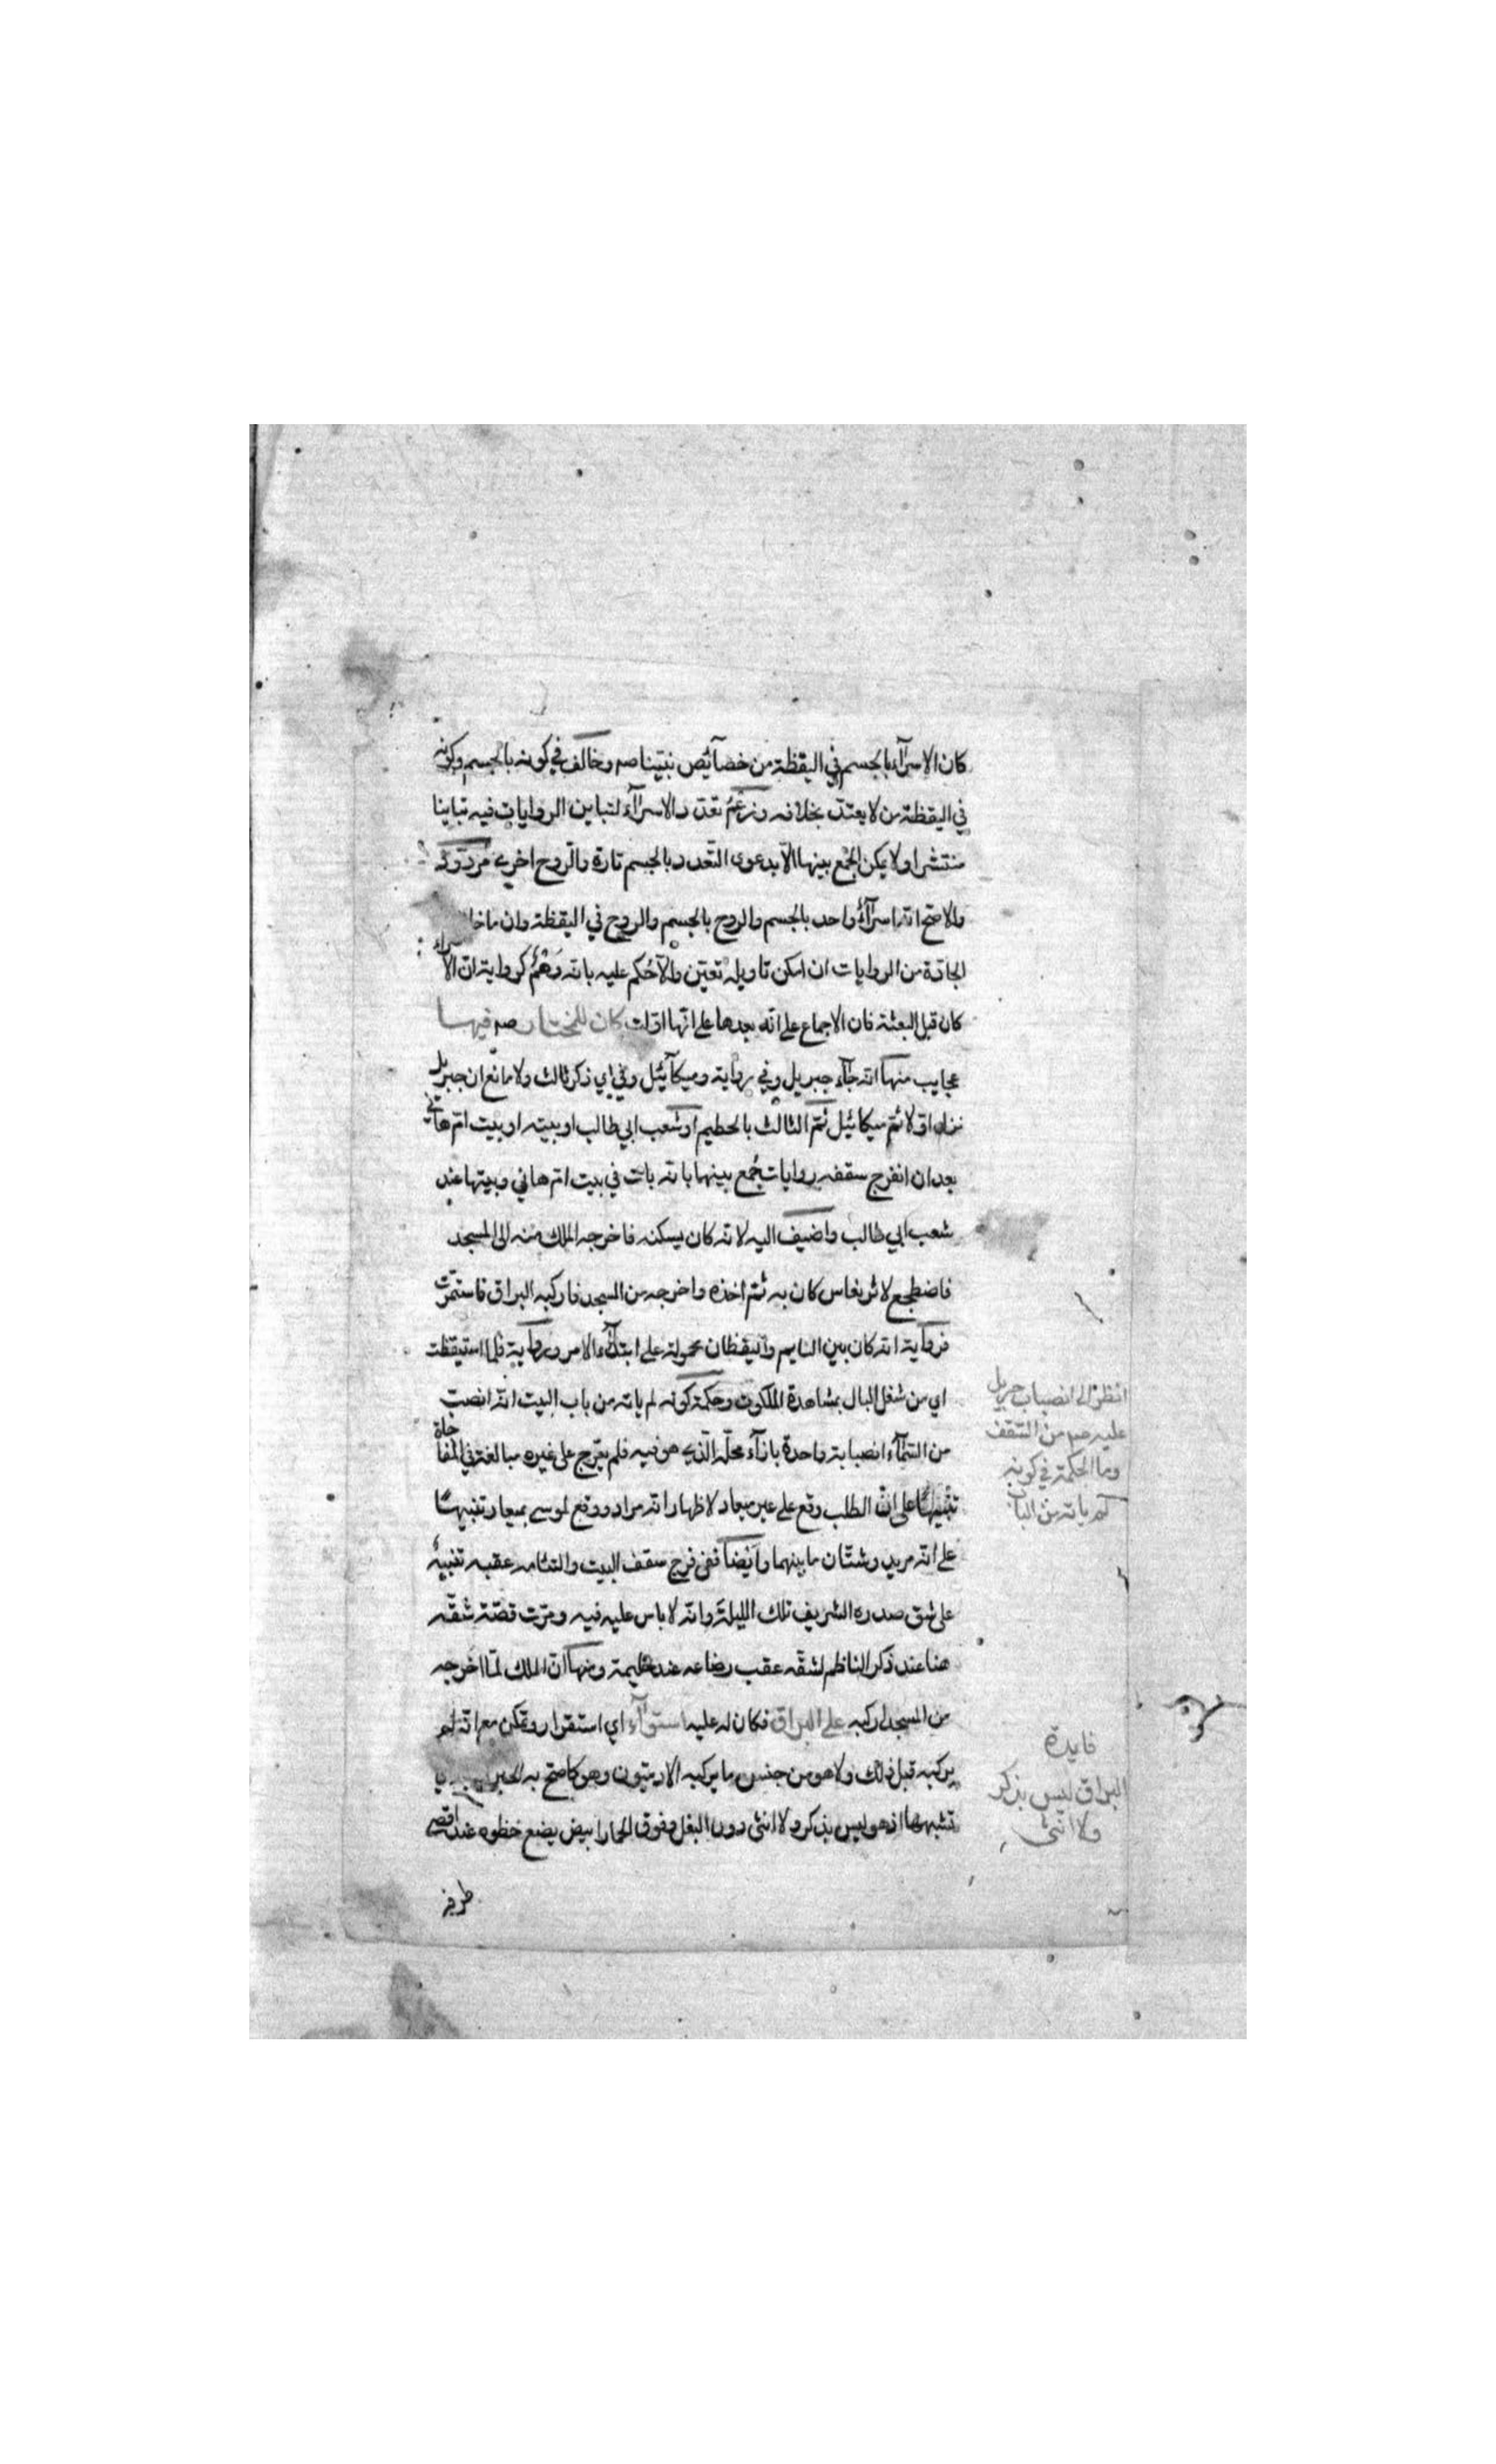 كان الاسرآء بالجسم في اليقظة من خصآئص نبينا صم وخالف في كونه بالجسم وكونه
في اليقظة من لا يعتد بخلافه وزعم تعدد الاسرآء لتباين الروايات فيه تباينا
منتشرا ولا يمكن الجمع بينها الا بدعوى التعدد بالجسم تارة والروح اخرى مردود
والاصح انه اسرآء واحد بالجسم والروح بالجسم والروح في اليقظة وان ما خا
الجادة من الروايات ان امكن تاويله تعين والا حكم عليه بانه وهم كرواية ان الاسراء
كان قبل البعثة فان الاجماع على انه بعدها على انها اولت كان للمختار صم فيها
عجايب منها انه جآء جبريل وفي رواية وميكآئيل وفي اي ذكر ثالث ولا مانع ان جبريل
نزل اولا ثم ميكائيل ثم الثالث بالحطيم او شعب ابي طالب او بيته او بيت ام هاني
بعد ان انفرج سقفه روايات جمع بينها بانه بات في بيت ام هاني وبيتها عند
شعب ابي طالب واضيف اليه لانه كان يسكنه فاخرجه الملك منه الى المسجد
فاضطجع لاثر نعاس كان به ثم اخذه واخرجه من المسجد فاركبه البراق فاستمرت
فرواية انه كان بين النايم واليقظان محمولة على ابتدآء الامر ورواية فلما استيقظت
اي من شغل البال بمشاهدة الملكوت وحكمة كونه لم ياته من باب البيت انه انصب
من السمآء انصبابة واحدة بازآء محله الذي هو فيه فلم يعرج على غيره مبالغة في المفاجاة
تنبيها على ان الطلب وقع على غير ميعاد لاظهار انه مراد ووقع لموسى بميعاد تنبيها
على انه مريد وشتان ما بينهما وايضا ففي فرج سقف البيت والتئامه عقبه تنبيه
على شق صدره الشريف تلك الليلة وانه لا باس عليه فيه ومرت قصة شقه
هنا عند ذكر الناظم لشقه عقب رضاعه عند حليمة ومنها ان الملك لما اخرجه
من المسجد اركبه على البراق فكان له عليه استوآء اي استقرار وتمكن مع انه لم
يركبه قبل ذلك ولا هو من جنس ما يركبه الادميون وهو كما صح به الخبر
تشبهها اذ هو ليس بذكر ولا انثى دون البغل وفوق الحمار ابيض يضع خطوه عند اقصى
طرفه
انظر الى انصباب جبريل
عليه صم من السقف
وما الحكمة في كونه
لم ياته من الباب
فايدة
البراق ليس بذكر
ولا انثى